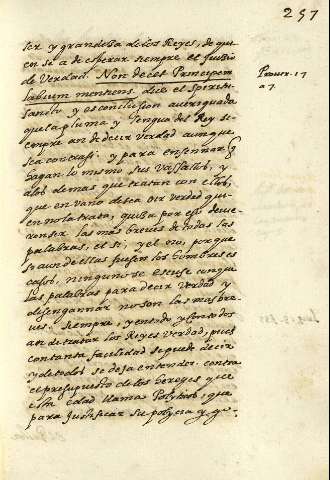 257
ser y grandeza de los Reyes, de qui
en se a de esperar siempre el Juizio
de Verdad. Non decet Principem
labium mentiens dice el Spiritu
santo y es conclusion averiguada
que la pluma y lengua del Rey si
empre an de decir verdad aunque
sea contra si y para enseñar q
hagan lo mismo sus Vassallos, y
a los demas que tratan con ellos,
que en vano desea oir verdad qui
en no la trata, quiza por esso devie
ron ser las mas breves de todas las
palabras, el si, y el no, porque
si aun de ellas fuesen los hombres es
casos, ninguno se escuse aunque
las palabras para decir verdad y
desengañar no son las mas bre
ves. siempre, y en todo y con todos
an de tratar los Reyes verdad, pues
con tanta facilidad se puede decir
y de todos se deja entender. contra
el presupuesto de los Hereyes que
esta edad llama Polyticos, que
para Justificar su polycia y go-
Prouer. 17
a 7.